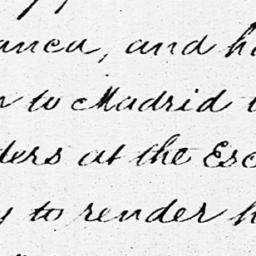 anca, and h
n to Madrid t
ders at the Esc
y to render h